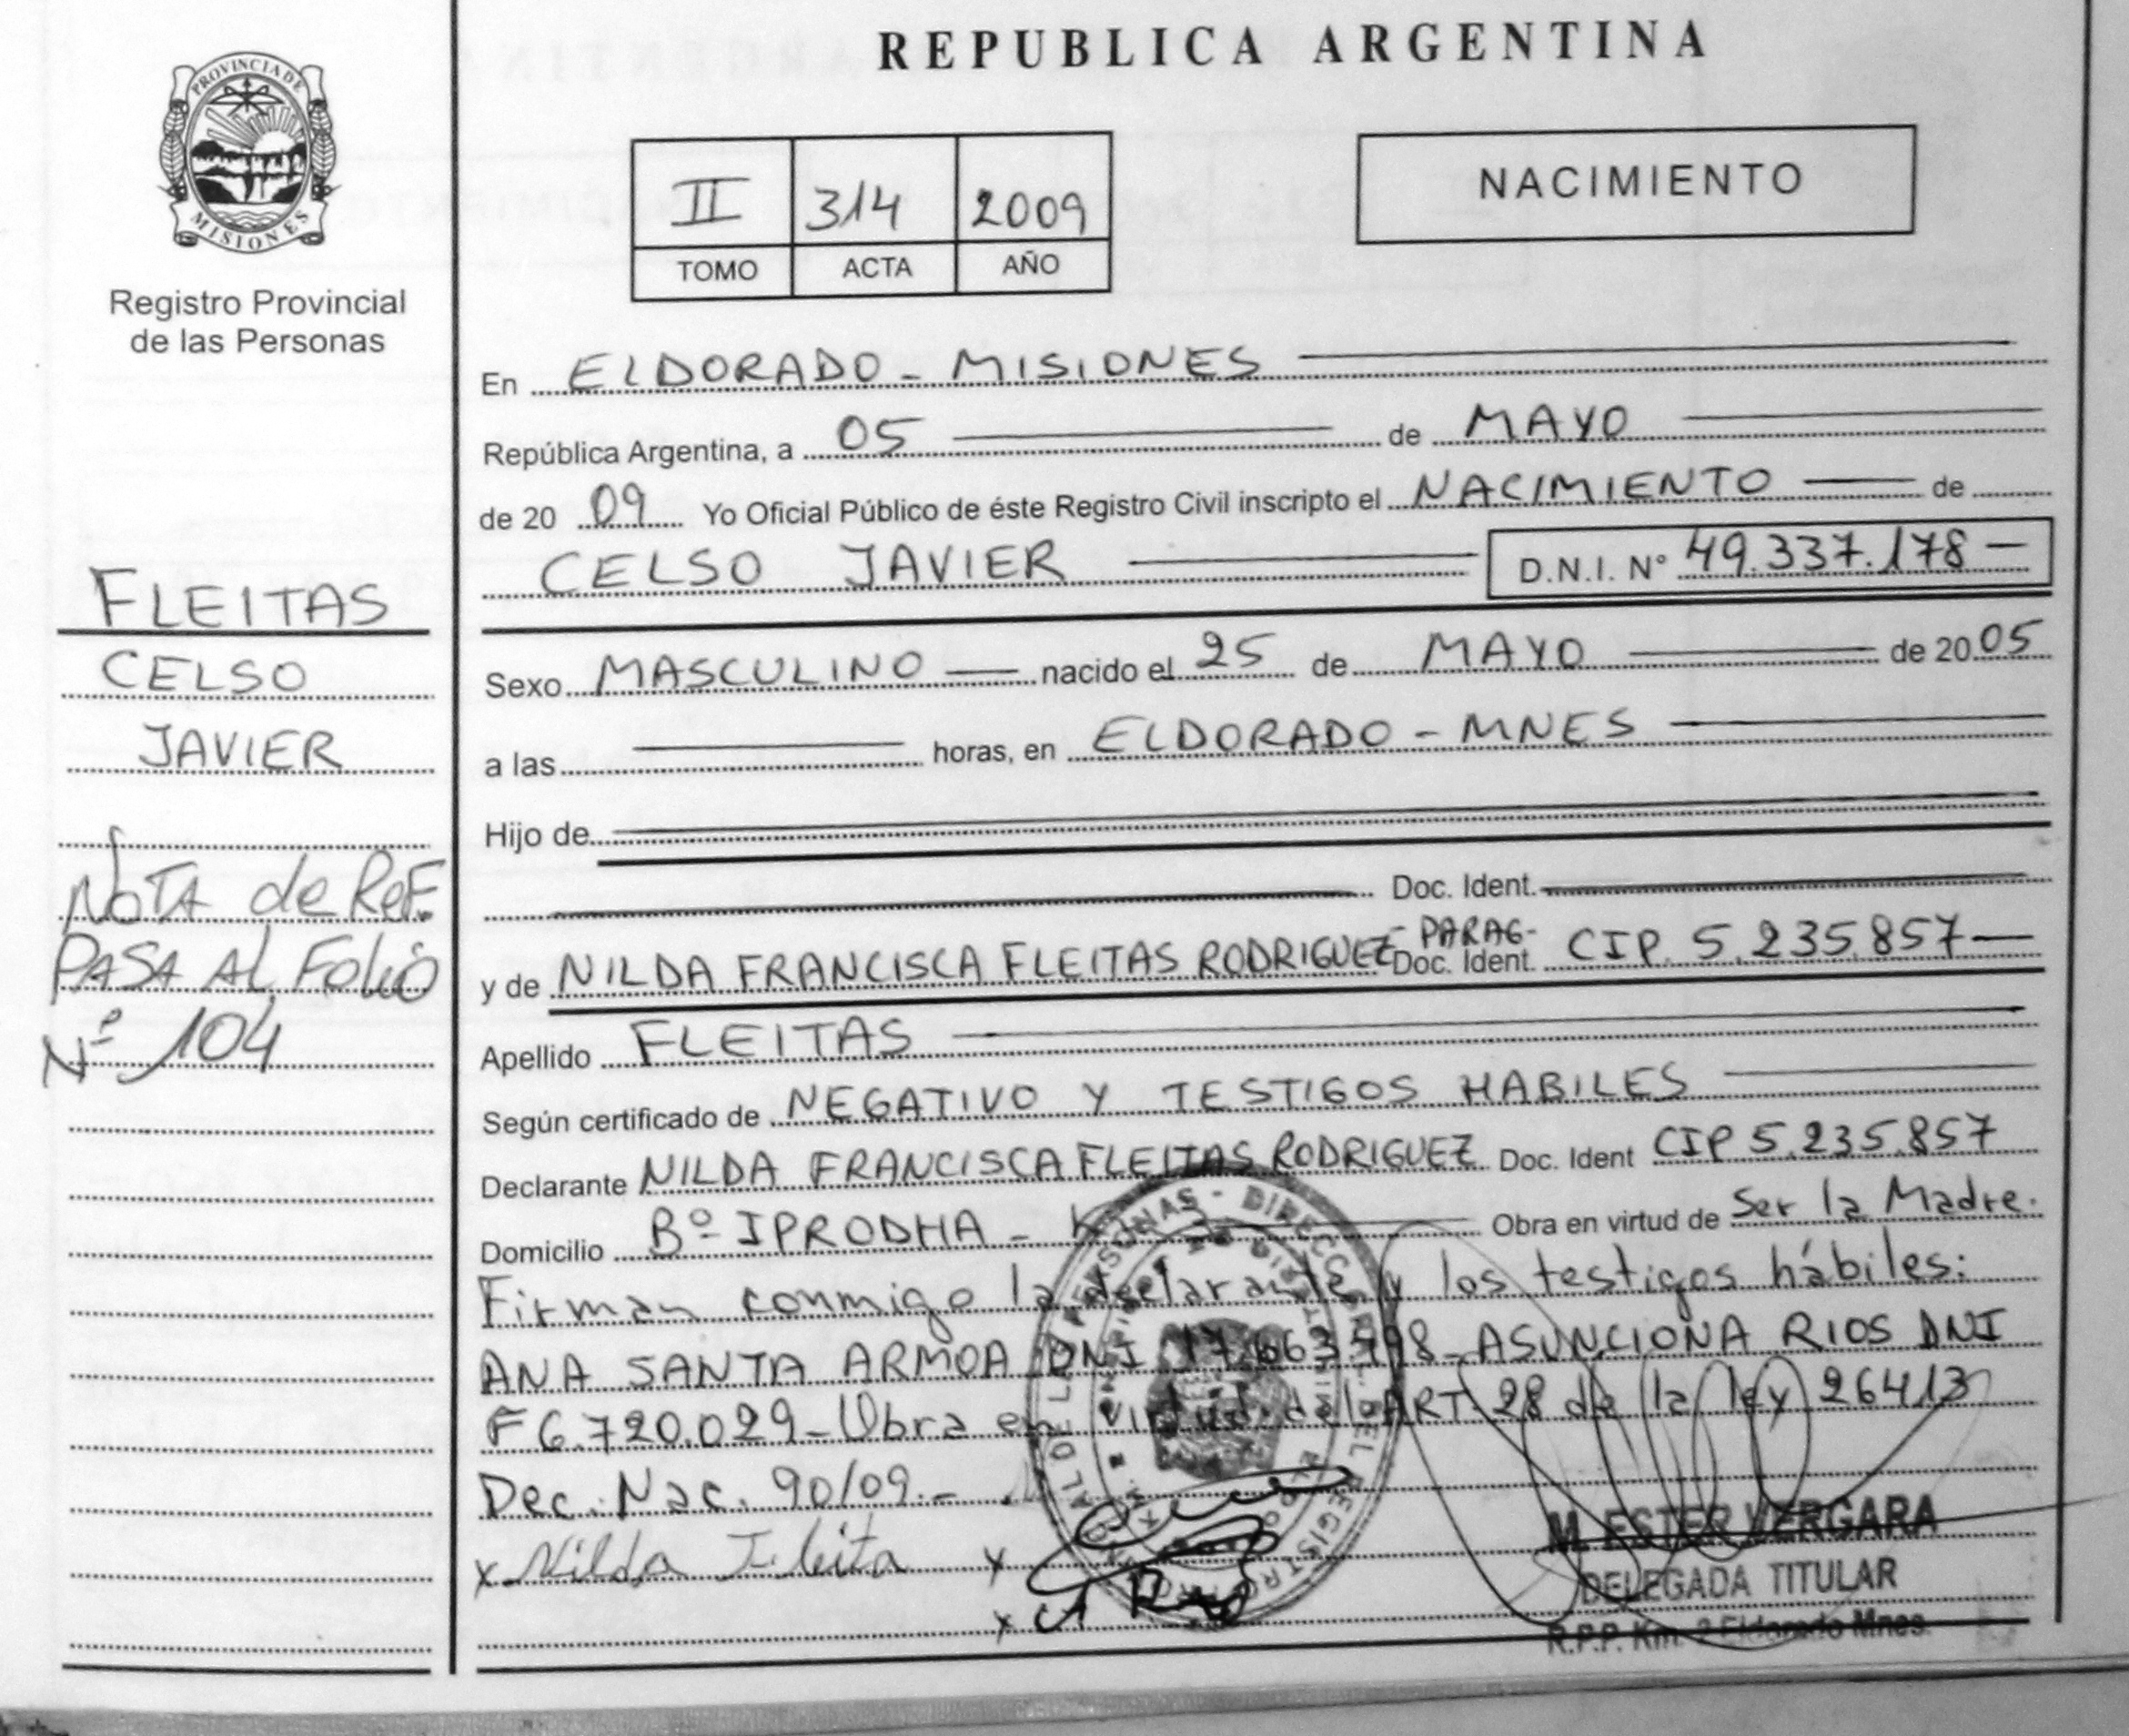 REPUBLICA ARGENTINA
PROVINCIA DE
MISIONES
Registro Provincial
de las Personas
II 314 2009
TOMO ACTA AÑO
NACIMIENTO
En ELDORADO - MISIONES
República Argentina, a 05 de MAYO
de 20 09 Yo Oficial Público de éste Registro Civil inscripto el NACIMIENTO de
CELSO JAVIER D.N.I. N° 49.337.178
FLEITAS
CELSO
JAVIER
NOTA de REF.
PASA AL FOLIO
Nº 104
Sexo MASCULINO nacido el 25 de MAYO de 20 05
a las horas, en ELDORADO - MNES
Hijo de
Doc. Ident.
y de NILDA FRANCISCA FLEITAS RODRIGUEZ - PARAG- Doc. Ident. CIP. 5.235.857
Apellido FLEITAS
Según certificado de NEGATIVO Y TESTIGOS HABILES
Declarante NILDA FRANCISCA FLEITAS RODRIGUEZ Doc. Ident CIP 5.235.857
Domicilio Bº IPRODHA - Obra en virtud de Ser la Madre.
Firman conmigo la declarante y los testigos hábiles:
ANA SANTA ARMOA DNI ASUNCIONA RIOS DNI
F6.720.029 - Obra en virtud del ART. 28 de la ley 26413
Dec. Nac. 90/09.-
x Nilda Fleita x
x
M. ESTER VERGARA
DELEGADA TITULAR
R.P.P. Km. 2 Eldorado Mnes.